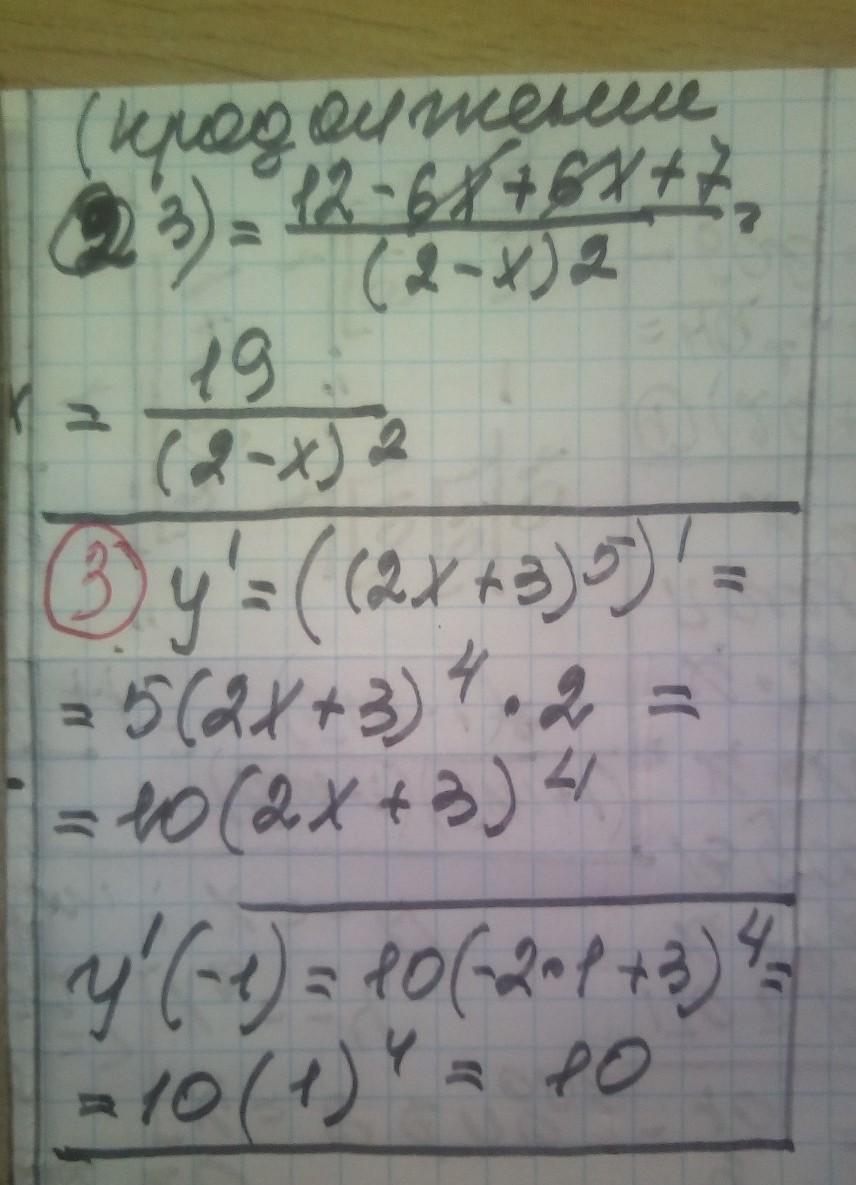 (продолжение
② 3) = (12 - 6x + 6x + 7) / (2 - x)² =
= 19 / (2 - x)²
③ y' = ((2x + 3)⁵)' =
= 5(2x + 3)⁴ · 2 =
= 10(2x + 3)⁴
y'(-1) = 10(-2·1 + 3)⁴ =
= 10(1)⁴ = 10